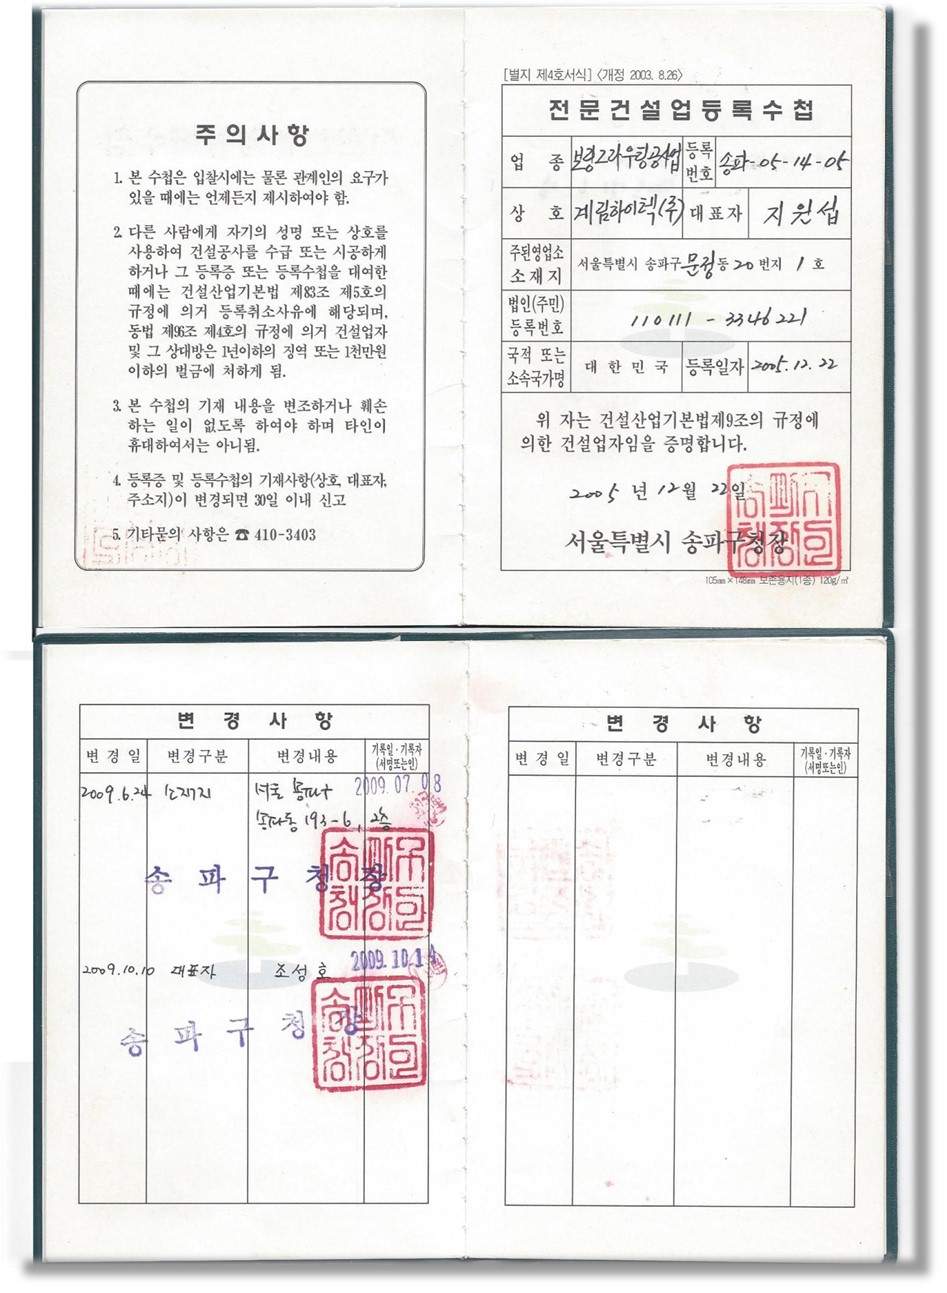 주의사항
1. 본 수첩은 입찰시에는 물론 관계인의 요구가
있을 때에는 언제든지 제시하여야 함.
2. 다른 사람에게 자기의 성명 또는 상호를
사용하여 건설공사를 수급 또는 시공하게
하거나 그 등록증 또는 등록수첩을 대여한
때에는 건설산업기본법 제83조 제5호의
규정에 의거 등록취소사유에 해당되며,
동법 제96조 제4호의 규정에 의거 건설업자
및 그 상대방은 1년이하의 징역 또는 1천만원
이하의 벌금에 처하게 됨.
3. 본 수첩의 기재 내용을 변조하거나 훼손
하는 일이 없도록 하여야 하며 타인이
휴대하여서는 아니됨.
4. 등록증 및 등록수첩의 기재사항(상호, 대표자,
주소지)이 변경되면 30일 이내 신고
5. 기타문의 사항은 ☎ 410-3403
[별지 제4호서식] <개정 2003. 8.26>
전문건설업등록수첩
업 종 보링그라우팅공사업 등록번호 송파-05-14-05
상 호 계림하이텍(주) 대표자 지원섭
주된영업소 소재지 서울특별시 송파구 문정동 20 번지 1 호
법인(주민) 등록번호 110111 - 3346221
국적 또는 소속국가명 대한민국 등록일자 2005.12.22
위 자는 건설산업기본법제9조의 규정에
의한 건설업자임을 증명합니다.
2005 년 12월 22일
서울특별시 송파구청장
105㎜×148㎜ 보존용지(1종) 120g/㎡
변 경 사 항
변 경 일 변경구분 변경내용 기록일·기록자 (서명또는인)
2009.6.24 소재지 서울 송파구 2009.07.08
송파동 193-6, 2층
송파구청장
2009.10.10 대표자 조성호 2009.10.14
송파구청장
변 경 사 항
변 경 일 변경구분 변경내용 기록일·기록자 (서명또는인)